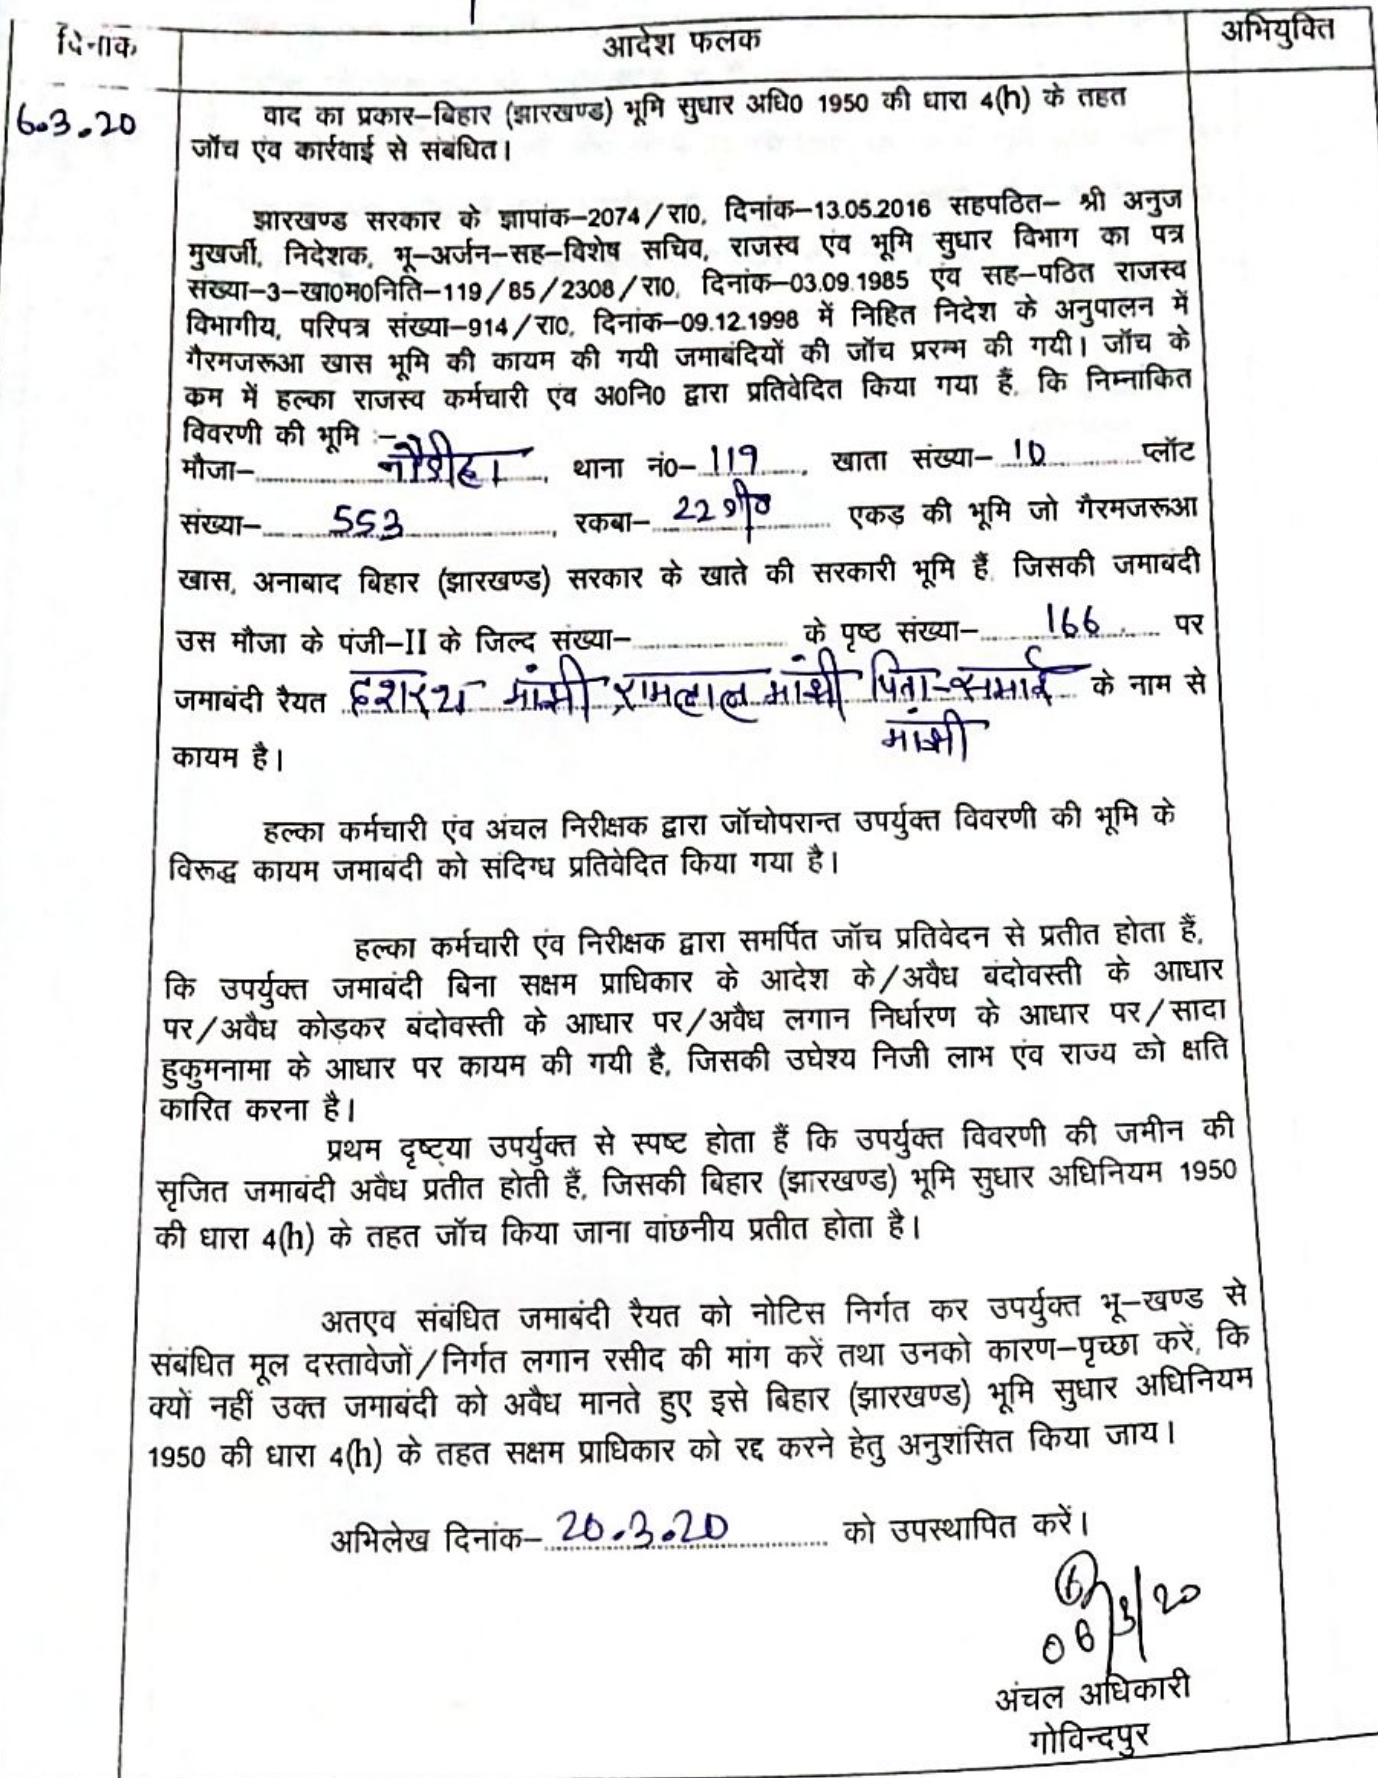 दिनांक आदेश फलक अभियुक्ति
6.3.20
वाद का प्रकार–बिहार (झारखण्ड) भूमि सुधार अधि0 1950 की धारा 4(h) के तहत
जॉच एंव कार्रवाई से संबंधित।
झारखण्ड सरकार के ज्ञापांक–2074/रा0, दिनांक–13.05.2016 सहपठित– श्री अनुज
मुखर्जी, निदेशक, भू–अर्जन–सह–विशेष सचिव, राजस्व एंव भूमि सुधार विभाग का पत्र
संख्या–3–खा0म0निति–119/85/2308/रा0, दिनांक–03.09.1985 एंव सह–पठित राजस्व
विभागीय, परिपत्र संख्या–914/रा0, दिनांक–09.12.1998 में निहित निदेश के अनुपालन में
गैरमजरूआ खास भूमि की कायम की गयी जमाबंदियों की जॉच प्ररम्भ की गयी। जॉच के
कम में हल्का राजस्व कर्मचारी एंव अ0नि0 द्वारा प्रतिवेदित किया गया हैं, कि निम्नांकित
विवरणी की भूमि :–
मौजा– थाना नं0– 119, खाता संख्या– 10 प्लॉट
संख्या– 553, रकबा– 22 एकड़ की भूमि जो गैरमजरूआ
खास, अनाबाद बिहार (झारखण्ड) सरकार के खाते की सरकारी भूमि हैं, जिसकी जमाबंदी
उस मौजा के पंजी–II के जिल्द संख्या– के पृष्ठ संख्या– 166 पर
जमाबंदी रैयत दशरथ मांझी, रामलाल मांझी पिता– के नाम से
मांझी
कायम है।
हल्का कर्मचारी एंव अंचल निरीक्षक द्वारा जॉचोपरान्त उपर्युक्त विवरणी की भूमि के
विरूद्ध कायम जमाबंदी को संदिग्ध प्रतिवेदित किया गया है।
हल्का कर्मचारी एंव निरीक्षक द्वारा समर्पित जॉच प्रतिवेदन से प्रतीत होता हैं,
कि उपर्युक्त जमाबंदी बिना सक्षम प्राधिकार के आदेश के/अवैध बंदोवस्ती के आधार
पर/अवैध कोड़कर बंदोवस्ती के आधार पर/अवैध लगान निर्धारण के आधार पर/सादा
हुकुमनामा के आधार पर कायम की गयी है, जिसकी उघेश्य निजी लाभ एंव राज्य को क्षति
कारित करना है।
प्रथम दृष्ट्या उपर्युक्त से स्पष्ट होता हैं कि उपर्युक्त विवरणी की जमीन की
सृजित जमाबंदी अवैध प्रतीत होती हैं, जिसकी बिहार (झारखण्ड) भूमि सुधार अधिनियम 1950
की धारा 4(h) के तहत जॉच किया जाना वांछनीय प्रतीत होता है।
अतएव संबंधित जमाबंदी रैयत को नोटिस निर्गत कर उपर्युक्त भू–खण्ड से
संबंधित मूल दस्तावेजों/निर्गत लगान रसीद की मांग करें तथा उनको कारण–पृच्छा करें, कि
क्यों नहीं उक्त जमाबंदी को अवैध मानते हुए इसे बिहार (झारखण्ड) भूमि सुधार अधिनियम
1950 की धारा 4(h) के तहत सक्षम प्राधिकार को रद्द करने हेतु अनुशंसित किया जाय।
अभिलेख दिनांक– 20.3.20 को उपस्थापित करें।
06/3/20
अंचल अधिकारी
गोविन्दपुर